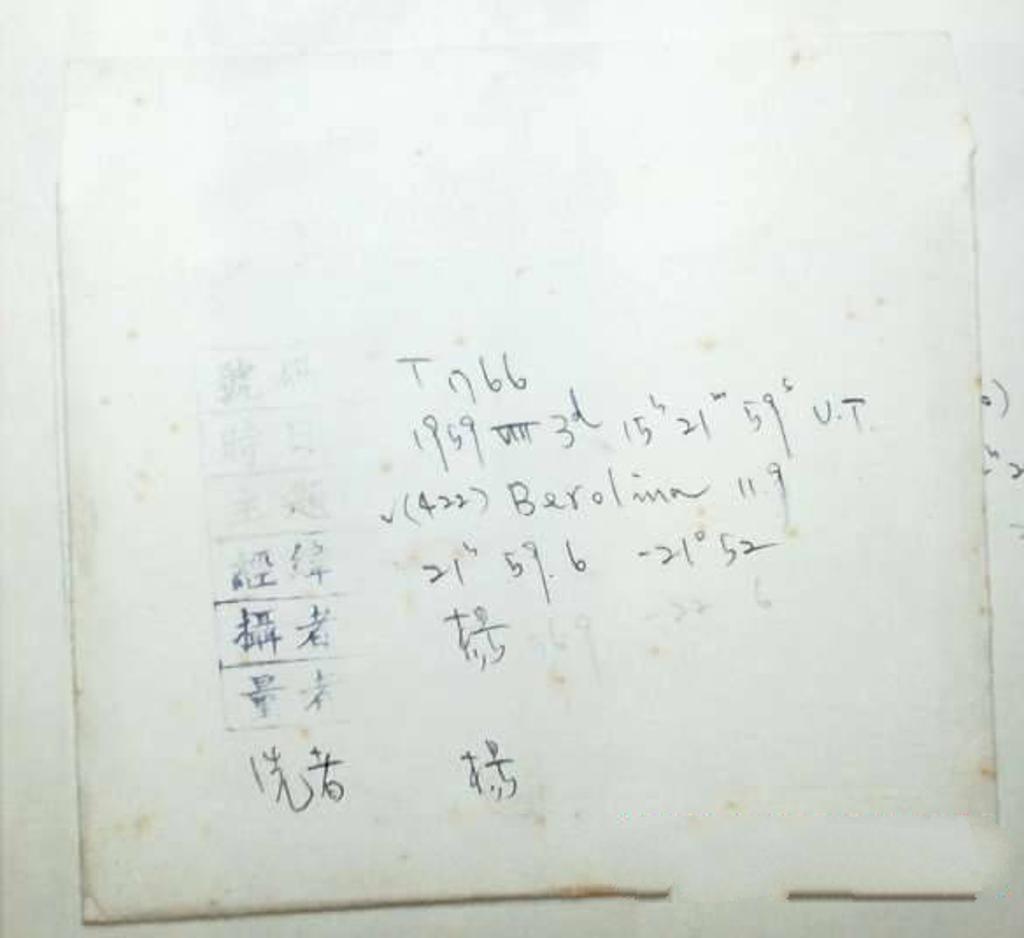 號 T 1766
時日 1959 VIII 3ᵈ 15ʰ 21ᵐ 59ˢ U.T.
主題 √(422) Berolina 11.9
經緯 21ʰ 59.6 -21°52
-22 6
攝者 楊
量者
洗者 楊